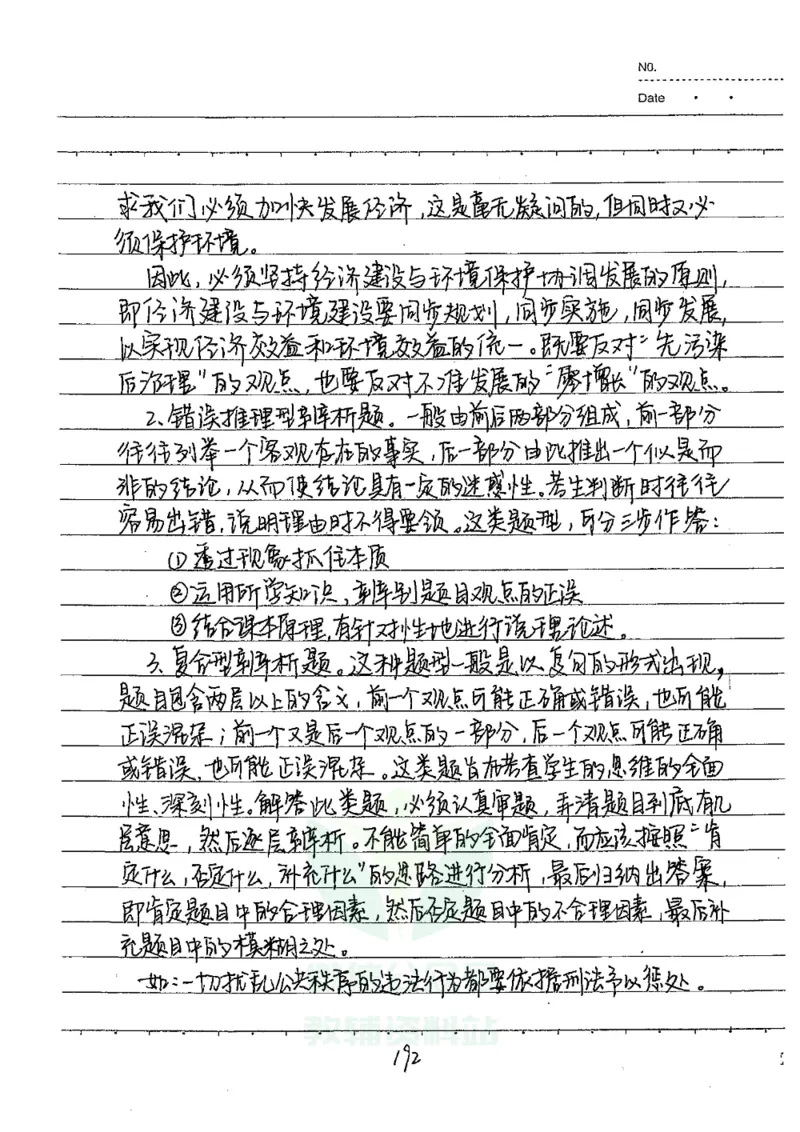 No.
Date
求我们必须加快发展经济,这是毫无疑问的,但同时又必
须保护环境。
因此,必须坚持经济建设与环境保护协调发展的原则,
即经济建设与环境建设要同步规划,同步实施,同步发展,
以实现经济效益和环境效益的统一。既要反对“先污染
后治理”的观点,也要反对不准发展的“零增长”的观点。
2、错误推理型辨析题。一般由前后两部分组成,前一部分
往往列举一个客观存在的事实,后一部分由此推出一个似是而
非的结论,从而使结论具有一定的迷惑性。考生判断时往往
容易出错,说明理由时不得要领。这类题型,可分三步作答:
①透过现象抓住本质
②运用所学知识,辨别题目观点的正误
③结合课本原理,有针对性地进行说理论述。
3、复合型辨析题。这种题型一般是以复句的形式出现,
题目包含两层以上的含义,前一个观点可能正确或错误,也可能
正误混杂;前一个又是后一个观点的一部分,后一个观点可能正确
或错误、也可能正误混杂。这类题旨在考查学生的思维的全面
性、深刻性。解答此类题,必须认真审题,弄清题目到底有几
层意思,然后逐层辨析。不能简单的全面肯定,而应该按照“肯
定什么,否定什么,补充什么”的思路进行分析,最后归纳出答案,
即肯定题目中的合理因素,然后否定题目中的不合理因素,最后补
充题目中的模糊之处。
如:一切扰乱公共秩序的违法行为都要依据刑法予以惩处。
教辅资料站
192